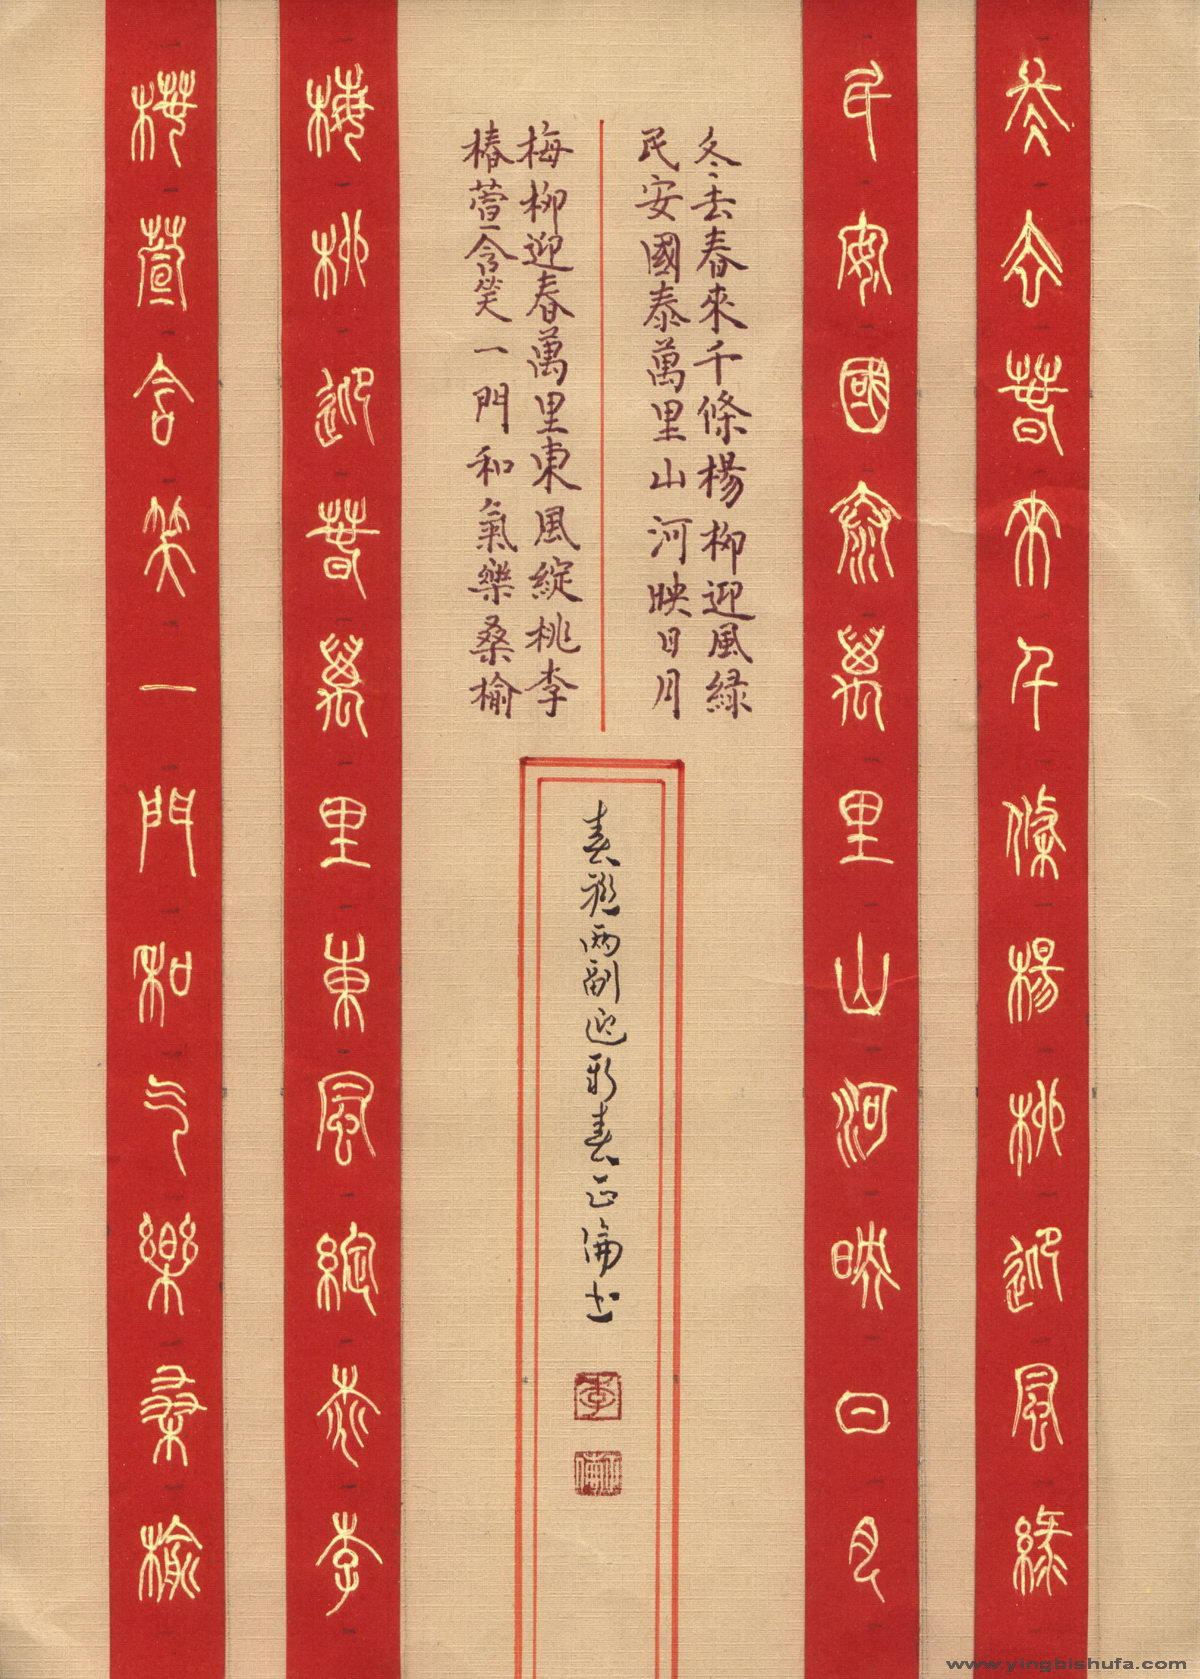 冬去春來千條楊柳迎風綠
民安國泰萬里山河映日月
冬去春來千條楊柳迎風綠
民安國泰萬里山河映日月
梅柳迎春萬里東風綻桃李
椿萱含笑一門和氣樂桑榆
春联两副迎新春正倫书
李
梅柳迎春萬里東風綻桃李
椿萱含笑一門和气樂桑榆
www.yingbishufa.com